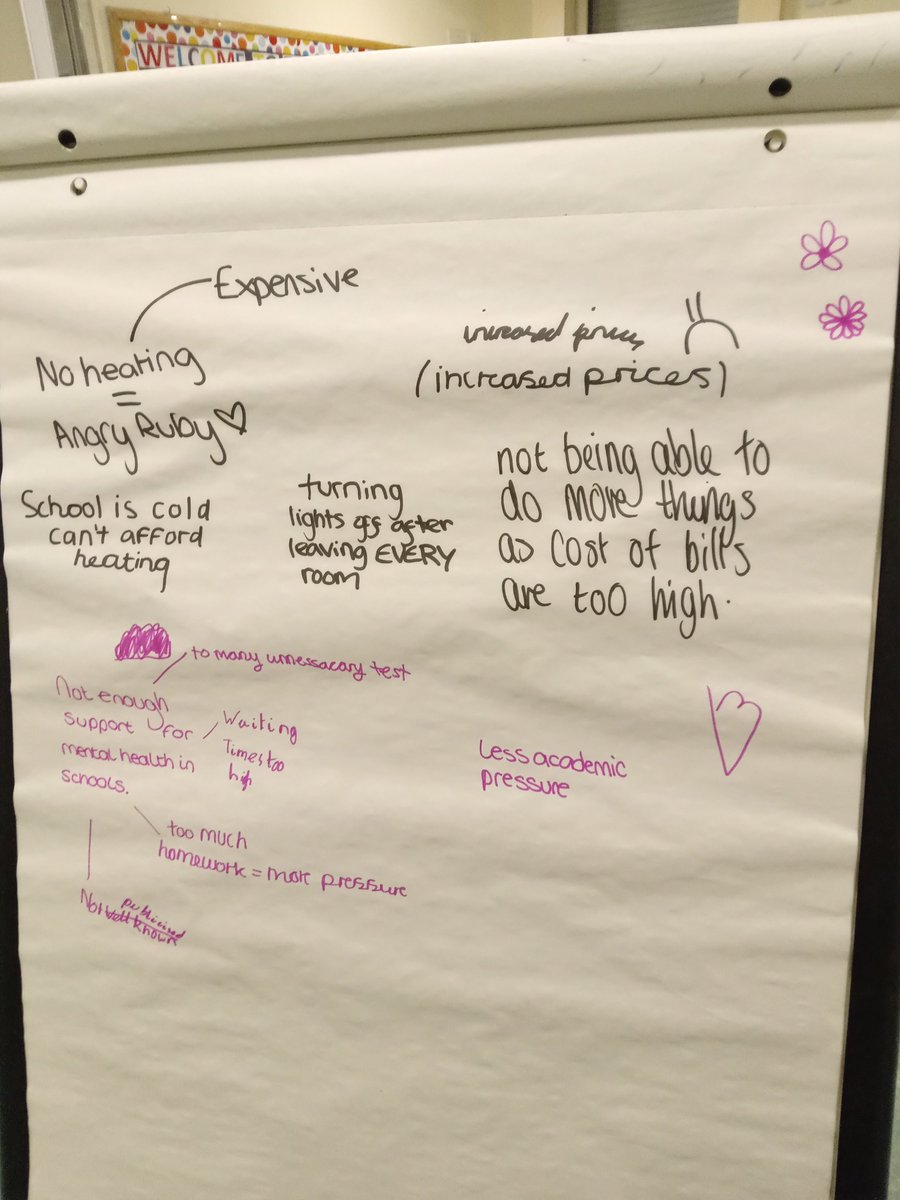 WELCOME TO
Expensive
No heating
=
Angry Ruby
increased prices
(increased prices)
School is cold
can't afford
heating
turning
lights off after
leaving EVERY
room
not being able to
do more things
as cost of bills
are too high.
to many unnessacary test
Not enough
support for
mental health in
schools.
Waiting
Times too
high
Less academic
pressure
too much
homework = more pressure
publicised
Not well known